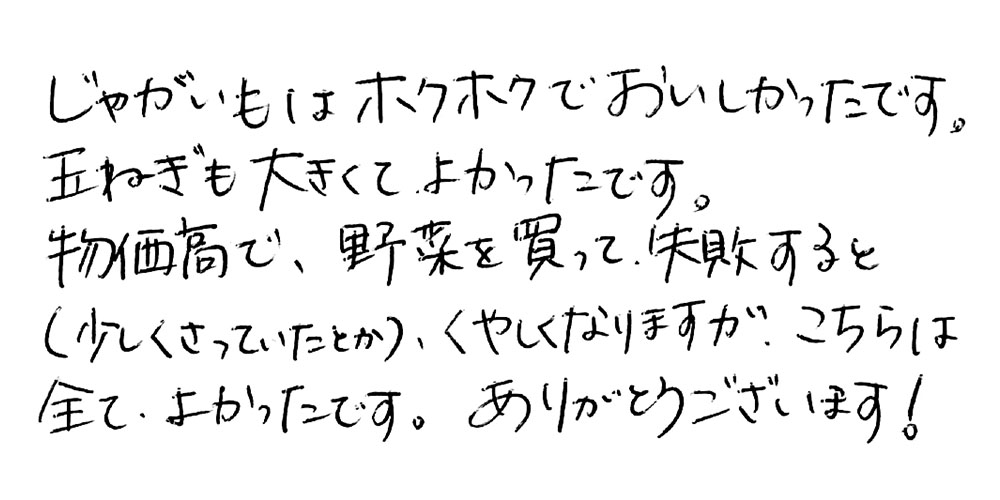 じゃがいもはホクホクでおいしかったです。
玉ねぎも大きくてよかったです。
物価高で、野菜を買って、失敗すると
(少しくさっていたとか)、くやしくなりますが、こちらは
全て、よかったです。ありがとうございます!